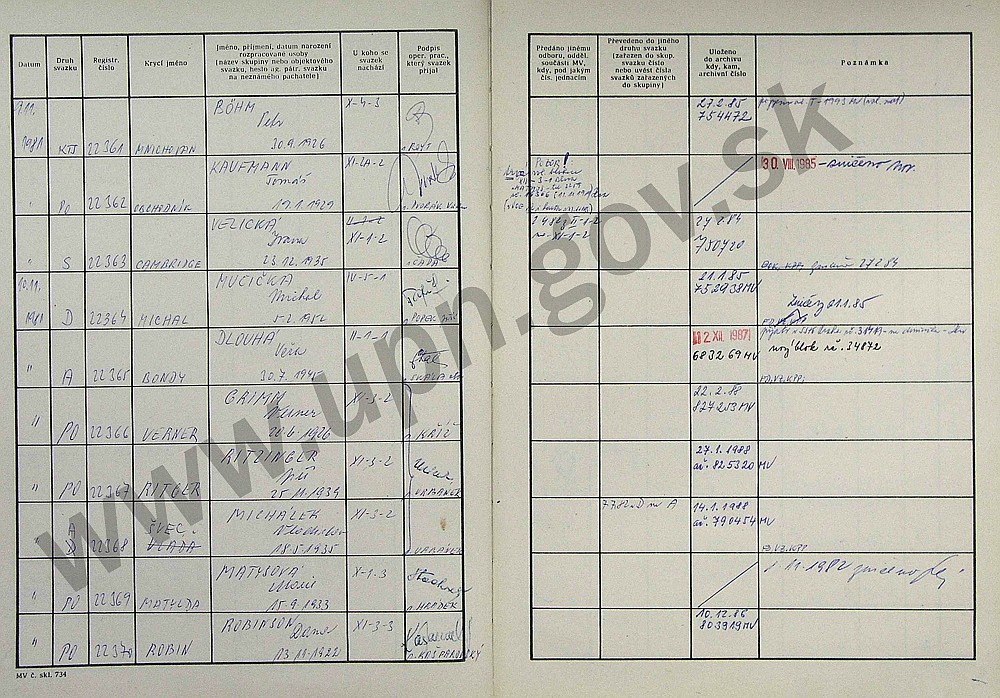 Datum
Druh svazku
Registr. číslo
Krycí jméno
Jméno, příjmení, datum narození
rozpracované osoby
(název skupiny nebo objektového
svazku, heslo ag. pátr. svazku
na neznámého pachatele)
U koho se
svazek
nachází
Podpis
oper. prac.,
který svazek
přijal
Předáno jinému
odboru, odděl.
součásti MV,
kdy, pod jakým
čís. jednacím
Převedeno do jiného
druhu svazku
(zařazen do skup.
svazku číslo
nebo uvést čísla
svazků zařazených
do skupiny)
Uloženo
do archivu
kdy, kam,
archivní číslo
Poznámka
9.11. BÖHM X-4-3 27.2.85
Petr 754472
1981 KTS 22361 MNICHOVAN 30.9.1926
KAUFMANN XI-2A-2 POZOR! 30. VIII. 1985 - zničeno
Tomáš
" PO 22362 OBCHODNÍK 19.1.1929
VELICKÁ XI-1-2 24.2.84
Ivana 750720
" S 22363 CAMBRIDGE 23.12.1935 27.2.84
10.11. MUCIČKA IV-5-1 21.1.85
Michal 752938 MV 21.1.85
1981 D 22364 MICHAL 5.2.1952
DLOUHÁ II-1-1 2. XII. 1987
Věra 683269 MV nový blok rč. 34872
" A 22365 BONDY 30.7.1945
GRIMM XI-3-2 22.2.88
Werner 827253 MV
" PO 22366 VERNER 20.6.1926 KŘÍŽ
RITZINGER XI-3-2 27.1.1988
Jiří ař. 825320 MV
" PO 22367 RITGER 25.11.1939 URBANEK
A ŠVEC MICHÁLEK XI-3-2 14.1.1988
Vladislav ař. 790454 MV
" D 22368 VLADA 18.5.1935
MATYSOVÁ X-1-3 1.11.1982
Marie
" PO 22369 MATYLDA 15.9.1933 HRADEK
ROBINSON XI-3-3 10.12.86
Dana 803919 MV
" PO 22370 ROBIN 13.11.1922
MV č. skl. 734
www.upn.gov.sk